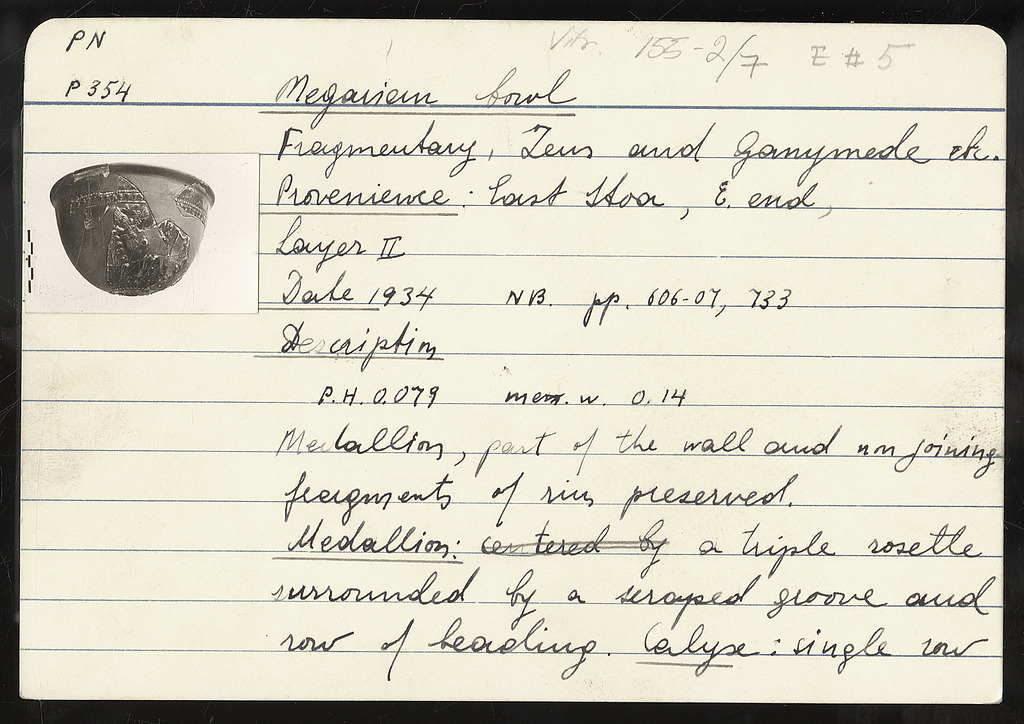 PN
Vitr. 155-2/7 E # 5
P 354
Megarian bowl
Fragmentary, Zeus and Ganymede etc.
Provenience: East Stoa, E. end,
Layer II
Date 1934 NB. pp. 606-07, 733
Description
P.H. 0.079 max. w. 0.14
Medallion, part of the wall and non joining
fragments of rim preserved.
Medallion: centered by a triple rosette
surrounded by a scraped groove and
row of beading. Calyx: single row